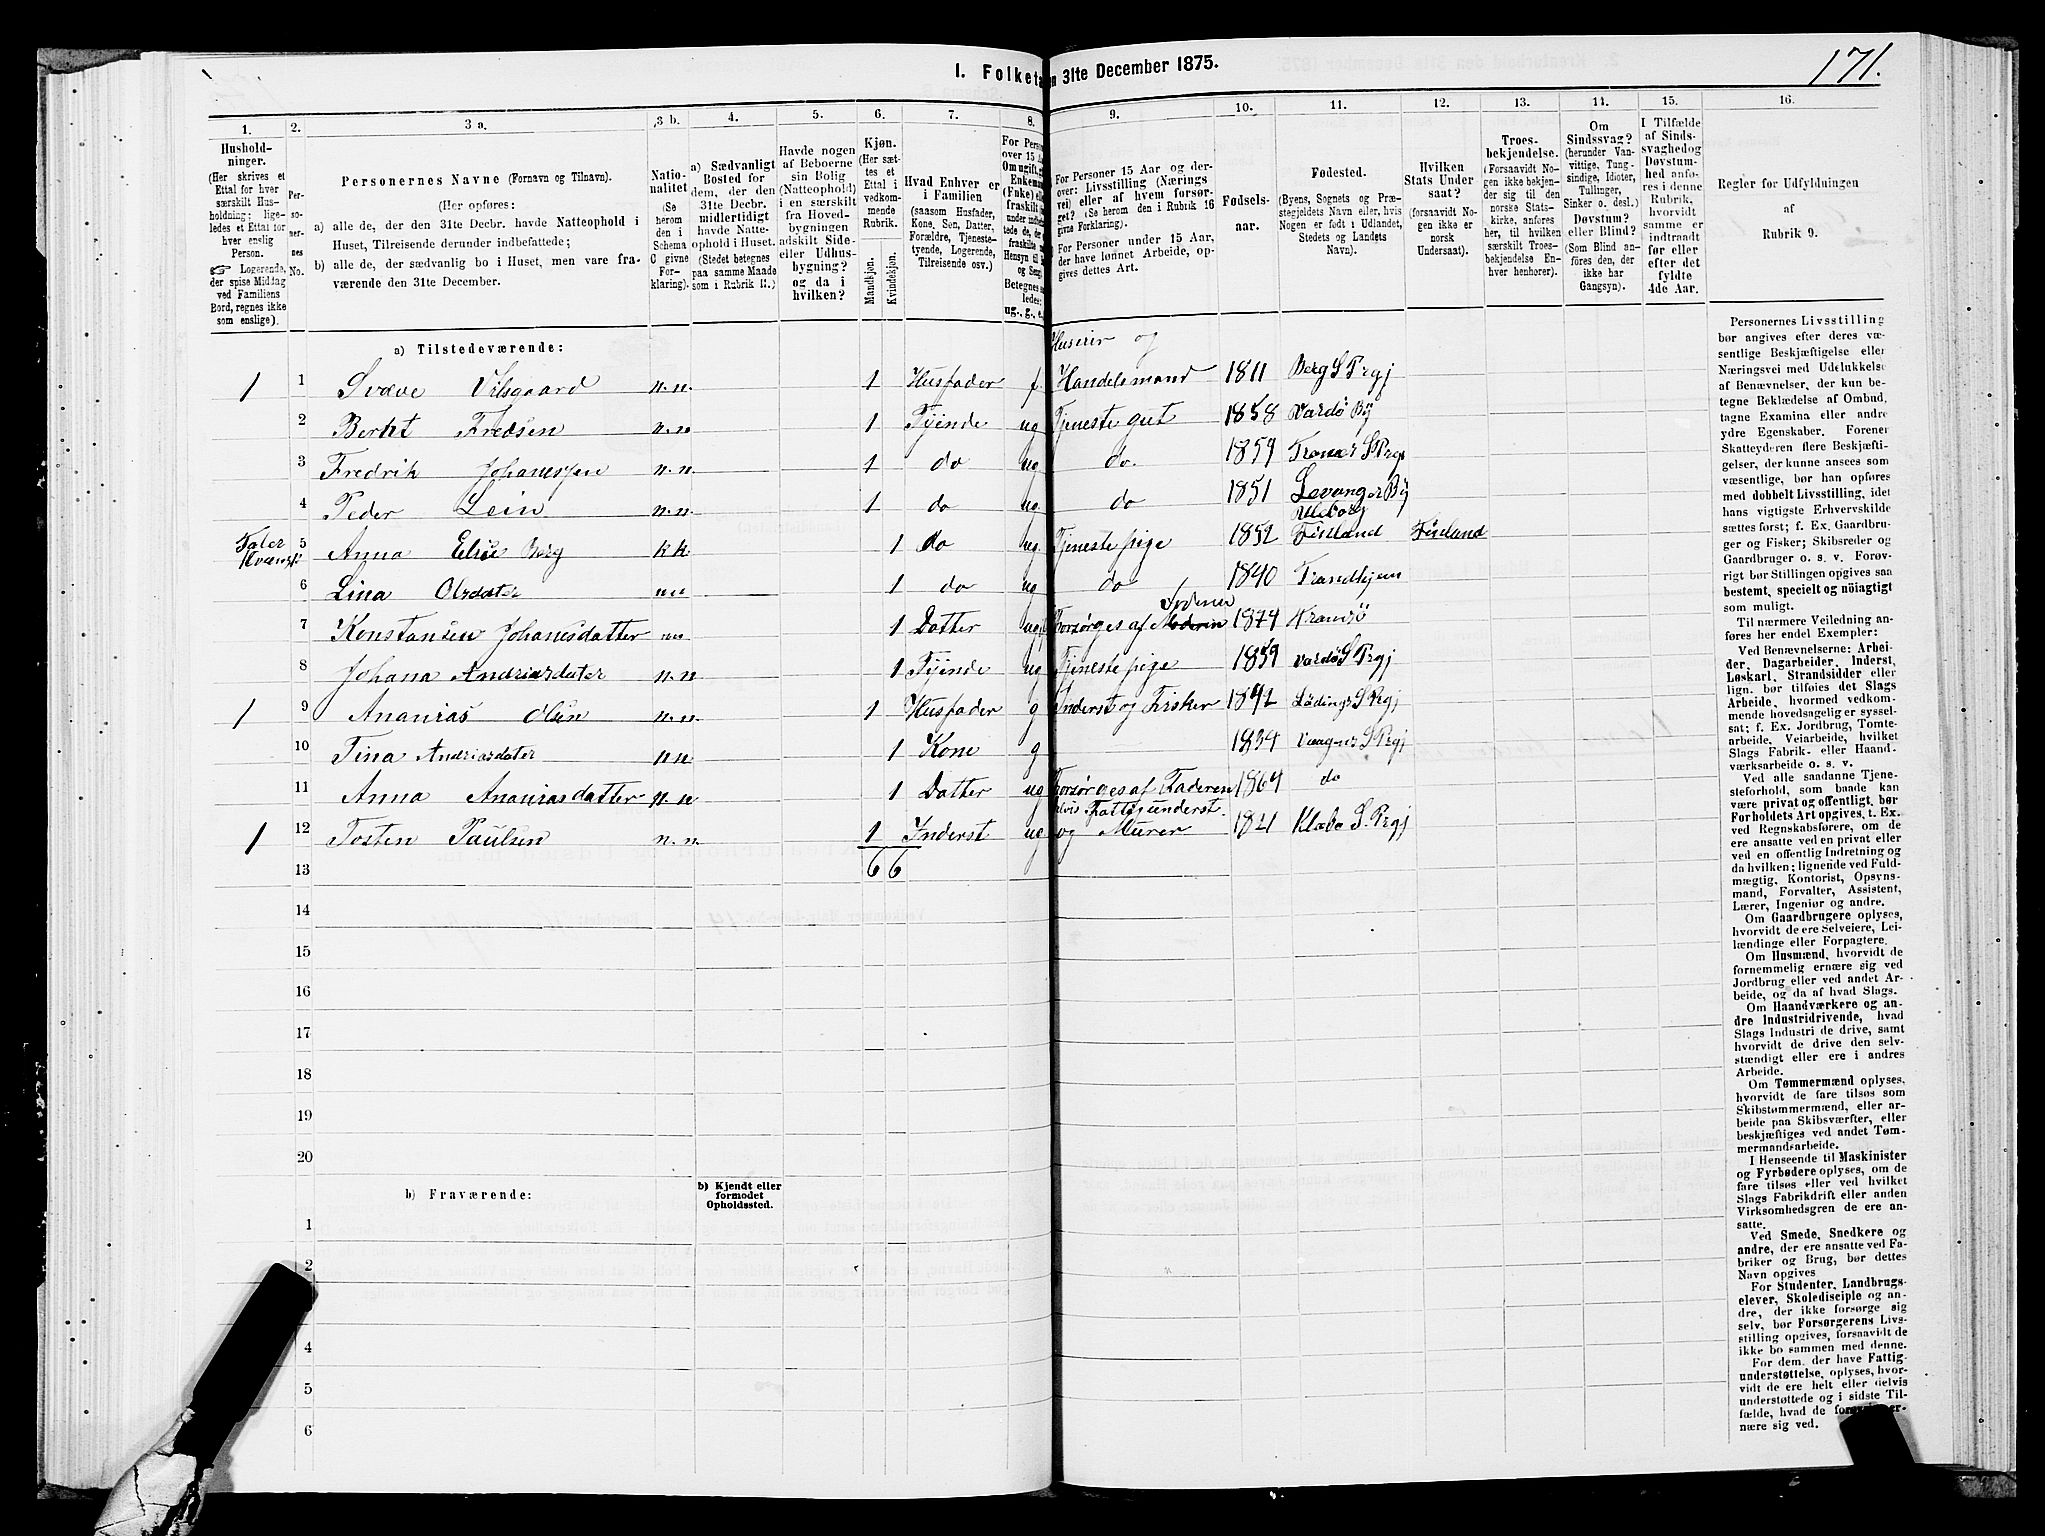 I. Folketa n 31te December 1875.
171.
1.
2.
3 a.
3 b.
4.
5.
6.
7.
8.
9.
10.
11.
12.
13.
14.
15.
16.
Hushold-
ninger.
(Her skrives et
Ettal for hver
særskilt Hus-
holdning; lige-
ledes et Ettal for
hver enslig
Person.
☞ Logerende,
der spise Middag
ved Familiens
Bord, regnes ikke
som enslige).
Per-
so-
ner-
nes
No.
Personernes Navne (Fornavn og Tilnavn).
(Her opføres:
a) alle de, der den 31te Decbr. havde Natteophold i
Huset, Tilreisende derunder indbefattede;
b) alle de, der sædvanlig bo i Huset, men vare fra-
værende den 31te December.
Natio-
nalitet
(Se
herom
den i
Schema
C givne
For-
klaring).
a) Sædvanligt
Bosted for
dem, der den
31te Decbr.
midlertidigt
havde Natte-
ophold i Huset.
(Stedet betegnes
paa samme Maade
som i Rubrik 11.)
Havde nogen
af Beboerne
sin Bolig
(Natteophold)
i en særskilt
fra Hoved-
bygningen
adskilt Side-
eller Udhus-
bygning?
og da i
hvilken?
Kjøn.
(Her sæt-
tes et
Ettal i
vedkom-
mende
Rubrik.
Mandkjøn.
Kvindekjøn.
Hvad Enhver er
i Familien
(saasom Husfader,
Kone, Søn, Datter,
Forældre, Tjeneste-
tyende, Logerende,
Tilreisende osv.)
For Perso
over 15 Aa
Om ugift, g
Enkem
(Enke) el
fraskilt
under indbe
tede de, fr
fraskilte
Hensyn til
og Seng
Betegnes s
ledes:
ug., g., e.,
For Personer 15 Aar og der-
over: Livsstilling (Nærings
vei) eller af hvem forsør-
get? (Se herom den i Rubrik 16
givne Forklaring).
For Personer under 15 Aar,
der have lønnet Arbeide, op-
gives dettes Art.
Fødsels-
aar.
Fødested.
(Byens, Sognets og Præ-
stegjeldets Navn eller, hvis
Nogen er født i Udlandet,
Stedets og Landets
Navn).
Hvilken
Stats Under
saat?
(forsaavidt No-
gen ikke er
norsk
Undersaat).
Troes-
bekjendelse.
(Forsaavidt No-
gen ikke bekjen-
der sig til den
norske Stats-
kirke, anføres
her, til hvilken
særskilt Troes-
bekjendelse En-
hver henhorer).
Om
Sindssvag?
(herunder Van-
vittige, Tung-
sindige, Idioter,
Tullinger,
Sinker o. desl.)
Døvstum?
eller Blind?
(Som Blind an-
føres den, der
ikke har
Gangsyn).
I Tilfælde
af Sinds-
svaghed og
Døvstum-
hed anfø-
res i denne
Rubrik,
hvorvidt
samme er
indtraadt
før eller
efter det
fyldte
4de Aar.
Regler for Udfyldningen
af
Rubrik 9.
a) Tilstedeværende:
1 1 Svæve Vilsgaard n.n. 1 Husfader f. Huseier og Handelsmand 1811 Berg S Prgj
2 Berht Fredsen n.n 1 Tyende ug Tjeneste gut 1858 Vardö By
3 Fredrik Johanessen n.n. 1 do ug do. 1859 Tranö S Prgj
4 Peder Lein n.n. 1 do ug do 1851 Levanger By
5 Anna Elise Berg k k 1 do ug. Tjeneste pige 1852 Uleborg Finland Finland
6 Lina Olsdater nn 1 do ug do 1840 Trondhjem
7 Konstansen Johanesdatter nn 1 Datter ug Forsörges af Moderen Faderen 1874 Tromsö
8 Johana Andriasdater n.n 1 Tyende ug Tjeneste pige 1859 Vardö S Prgj
1 9 Ananias Olsen n.n. 1 Husfader g Inderst og Fisker 1842 Lödings S Prgj
10 Tina Andriasdater n n 1 Kone g 1834 Vaagens S Prgj
11 Anna Ananiasdatter n.n 1 Datter ug Forsörges af Faderen 1864 do
1 12 Tosten Paulsen n.n. 1 Inderst ug delvis Fattigunderst. og Murer 1821 Klæbo S. Prgj
13 6 6
14
15
16
17
18
19
20
b) Fraværende:
b) Kjendt eller
formodet
Opholdssted.
1
2
4
5
6
Personernes Livsstilling
bør angives efter deres væ-
sentlige Beskjæftigelse eller
Næringsvei med Udelukkelse
af Benævnelser, der kun be-
tegne Beklædelse af Ombud,
tagne Examina eller andre
ydre Egenskaber. Forener
Skatteyderen flere Beskjæfti-
gelser, der kunne ansees som
væsentlige, bør han opføres
med dobbelt Livsstilling, idet
hans vigtigste Erhvervskilde
sættes først; f. Ex. Gaardbru-
ger og Fisker; Skibsreder og
Gaardbruger o. s. v. Forøv-
rigt bør Stillingen opgives saa
bestemt, specielt og nöiagtigt
som muligt.
Til nærmere Veiledning an-
føres her endel Exempler:
Ved Benævnelserne: Arbei-
der, Dagarbeider, Inderst,
Løskarl, Strandsidder eller
lign. bør tilføies det Slags
Arbeide, hvormed vedkom-
mende hovedsagelig er syssel-
sat; f. Ex. Jordbrug, Tomte-
arbeide, Veiarbeide, hvilket
Slags Fabrik- eller Haand-
værksarbeide o. s. v.
Ved alle saadanne Tjene-
steforhold, som baade kan
være privat og offentligt, bør
Forholdets Art opgives, t. Ex.
ved Regnskabsførere, om de
ere ansatte ved en privat eller
ved en offentlig Indretning og
da hvilken; lignende ved Fuld-
mægtig, Kontorist, Opsyns-
mand, Forvalter, Assistent,
Lærer, Ingeniør og andre.
Om Gaardbrugere oplyses,
hvorvidt de ere Selveiere, Lei-
lændinge eller Forpagtere.
Om Husmænd, hvorvidt de
fornemmelig ernære sig ved
Jordbrug eller ved andet Ar-
beide, og da af hvad Slags.
Om Haandværkere og an-
dre Industridrivende, hvad
Slags Industri de drive, samt
hvorvidt de drive den selv-
stændigt eller ere i andres
Arbeide.
Om Tømmermænd oplyses,
hvorvidt de fare tilsøs som
Skibstømmermænd, eller ar-
beide paa Skibsværfter, eller
beskjæftiges ved andet Tøm-
mermandsarbeide.
I Henseende til Maskinister
og Fyrbødere oplyses, om de
fare tilsøs eller ved hvilket
Slags Fabrikdrift eller anden
Virksomhedsgren de ere an-
satte.
Ved Smede, Snedkere og
andre, der ere ansatte ved Fa-
briker og Brug, bør dettes
Navn opgives
For Studenter, Landbrugs-
elever, Skoledisciple og an-
dre, der ikke forsørge sig
selv, bør Forsørgerens Livs-
stilling opgives, forsaavidt de
ikke bo sammen med denne.
For dem, der have Fattig-
understøttelse, oplyses, hvor-
vidt de ere helt eller delvis
understøttede og i sidste Til-
fælde, hvad de forøvrigt er-
nære sig ved.